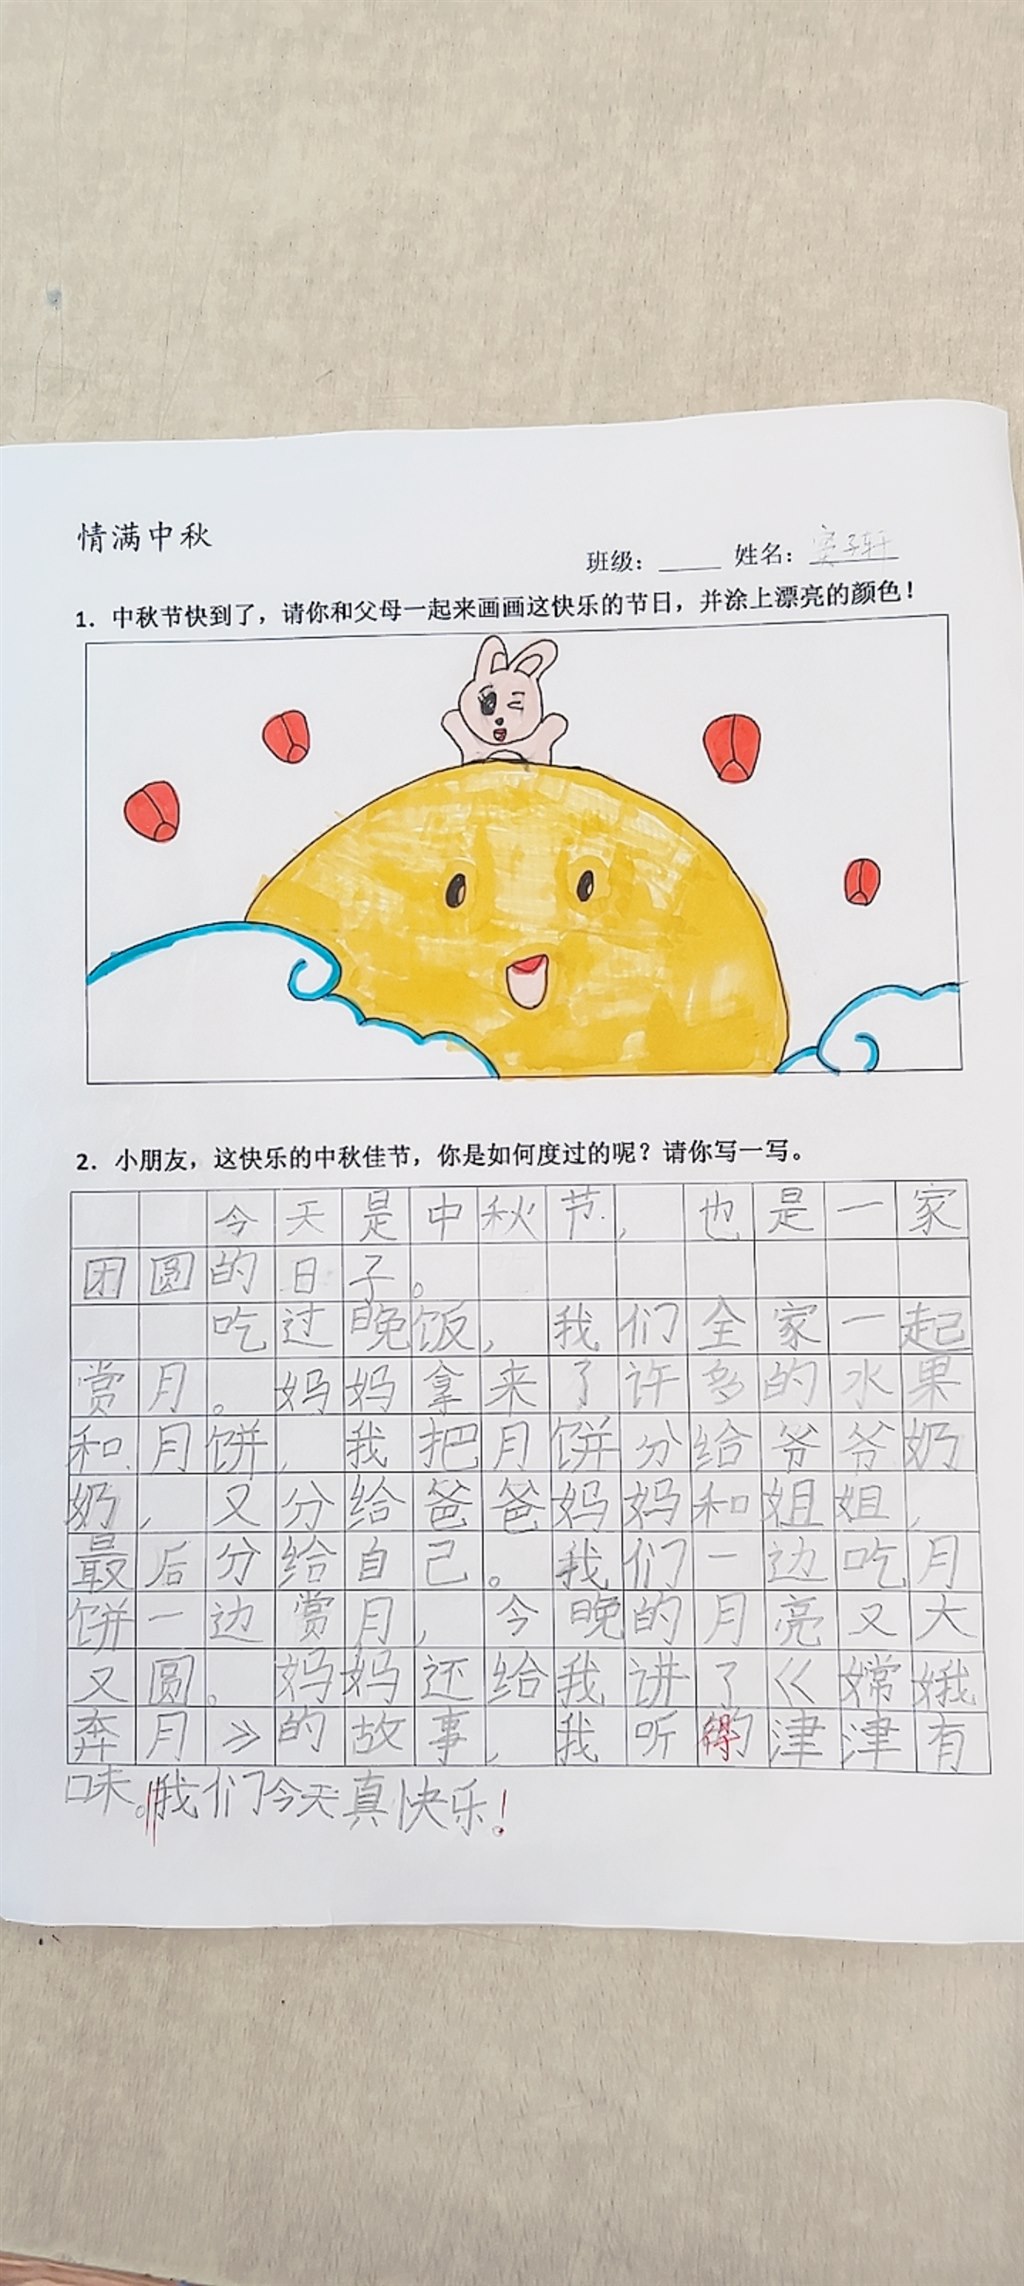 情满中秋
班级：_____ 姓名：窦子轩
1. 中秋节快到了，请你和父母一起来画画这快乐的节日，并涂上漂亮的颜色！
2. 小朋友，这快乐的中秋佳节，你是如何度过的呢？请你写一写。
今天是中秋节，也是一家
团圆的日子。
吃过晚饭，我们全家一起
赏月。妈妈拿来了许多的水果
和月饼，我把月饼分给爷爷奶
奶，又分给爸爸妈妈和姐姐，
最后分给自己。我们一边吃月
饼一边赏月，今晚的月亮又大
又圆。妈妈还给我讲了《嫦娥
奔月》的故事，我听得津津有
味。我们今天真快乐！